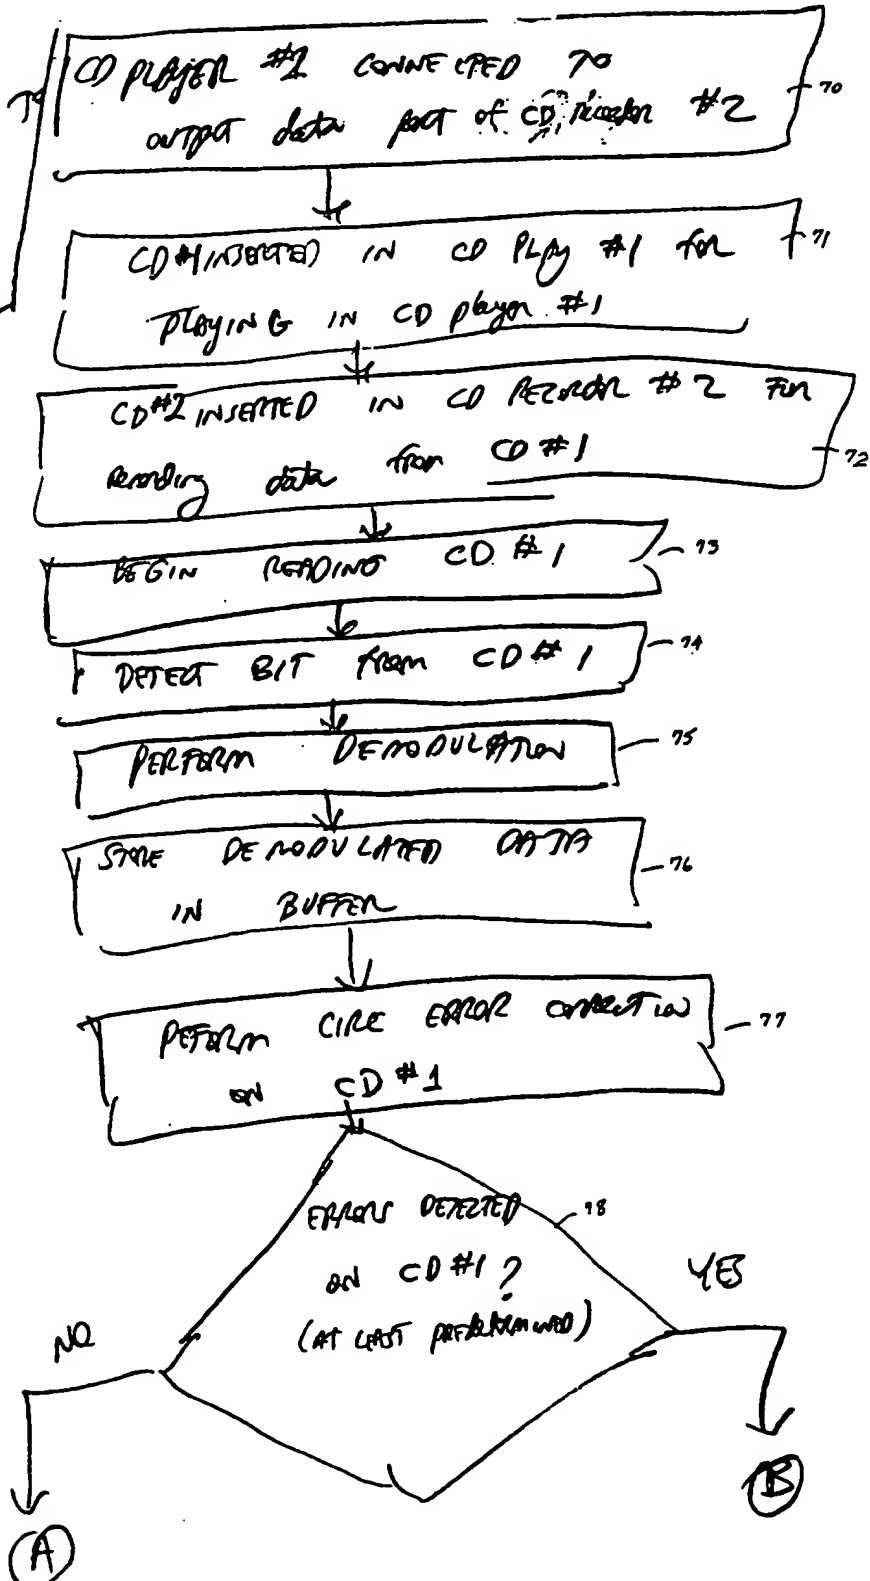 CD PLAYER #1 CONNECTED TO 70
output data port of CD recorder #2
CD #1 INSERTED IN CD PLAY #1 for 71
PLAYING IN CD player #1
CD #2 INSERTED IN CD RECORDR #2 FOR
Recording data from CD #1 72
BEGIN READING CD #1 73
DETECT BIT from CD #1 74
PERFORM DEMODULATION 75
STORE DEMODULATED DATA 76
IN BUFFER
PEFORM CIRC ERROR CORRECTION 77
ON CD #1
ERRORS DETECTED 78
ON CD #1 ?
YES
(AT LEAST PREDETERMINED)
NO
B
A